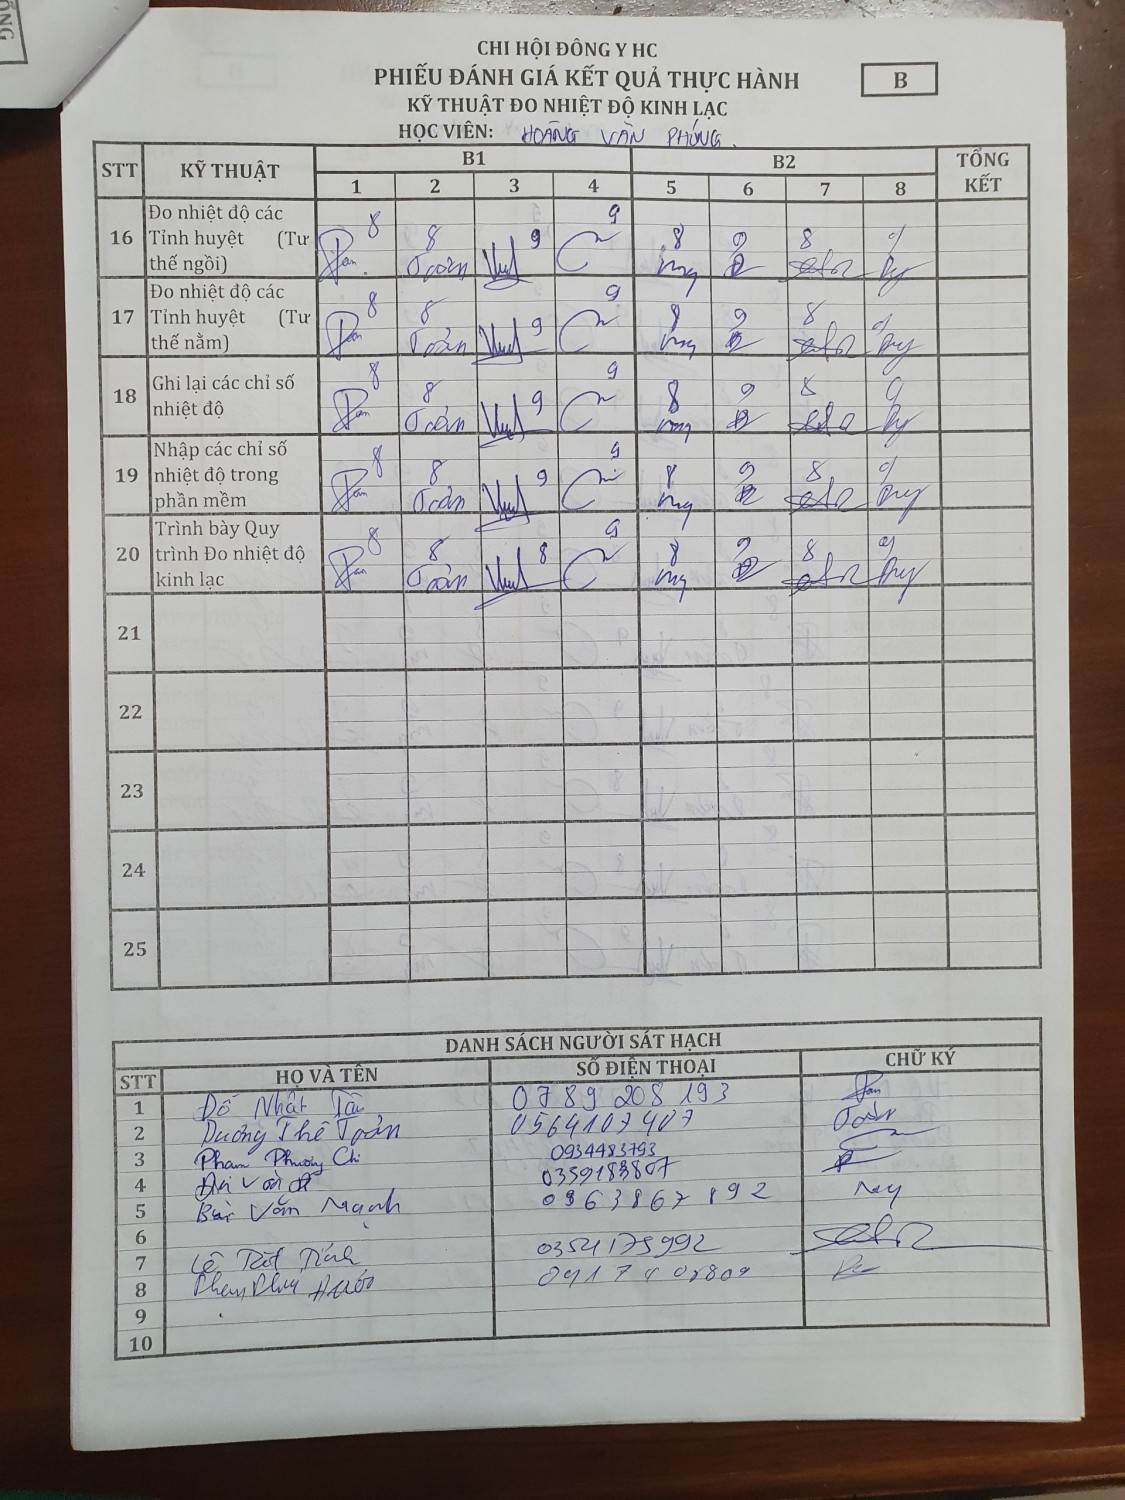 CHI HỘI ĐÔNG Y HC
PHIẾU ĐÁNH GIÁ KẾT QUẢ THỰC HÀNH
B
KỸ THUẬT ĐO NHIỆT ĐỘ KINH LẠC
HỌC VIÊN: HOÀNG VĂN PHÓNG.
STT KỸ THUẬT B1 B2 TỔNG KẾT
1 2 3 4 5 6 7 8
16 Đo nhiệt độ các Tỉnh huyệt (Tư thế ngồi) 8 8 9 9 8 9 8 9
Toản
17 Đo nhiệt độ các Tỉnh huyệt (Tư thế nằm) 8 8 9 9 8 9 8 9
Toản
18 Ghi lại các chỉ số nhiệt độ 8 8 9 9 8 9 8 9
Toản
19 Nhập các chỉ số nhiệt độ trong phần mềm 8 8 9 9 8 9 8 9
Toản
20 Trình bày Quy trình Đo nhiệt độ kinh lạc 8 8 8 9 8 9 8 9
Toản
21
22
23
24
25
DANH SÁCH NGƯỜI SÁT HẠCH
STT HỌ VÀ TÊN SỐ ĐIỆN THOẠI CHỮ KÝ
1 Đỗ Nhật Tân 0789 208 193
2 Dương Thế Toản 0564107407 Toản
3 Phạm Phương Chi 0934483793
4
5 Bùi Văn Mạnh 0963867892
6
7 Lê Tất 0354175992
8 Phạm
9
10